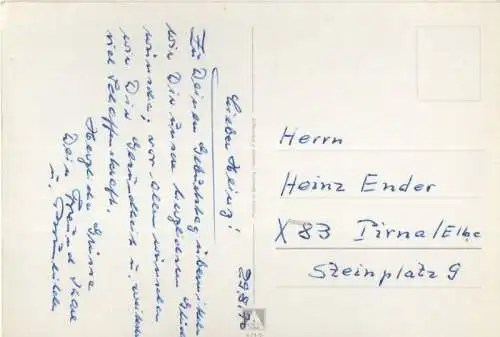 29.8.76
Lieber Heinz!
Zu Deinem Geburtstag übermitteln
wir Dir unsere herzlichsten Glück
wünsche; vor allem wünschen
wir Dir Gesundheit u. weiterhin
viel Schaffenskraft.
Herzliche Grüsse
Dein Freund
u.
Herrn
Heinz Ender
X 83 Pirna/Elbe
Steinplatz 9